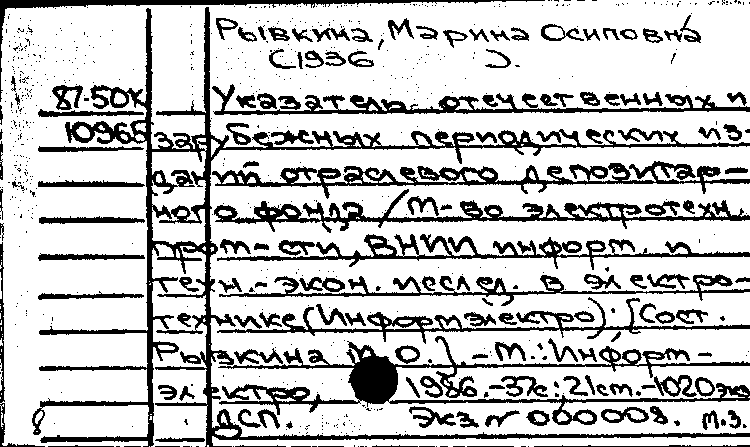 Рывкина, Марина Осиповна
(1936 ).
87-50к Указатель отечественных и
10965 зарубежных периодических из-
даний отраслевого депозитар-
ного фонда / М-во электротехн.
пром-сти, ВНИИ информ. и
техн.-экон. исслед. в электро-
технике (Информэлектро); [Сост.
Рывкина М.О.]. - М.: Информ-
электро, 1986.-37с; 21см.-1020экз
8 ДСП. Экз № 000008. м.з.